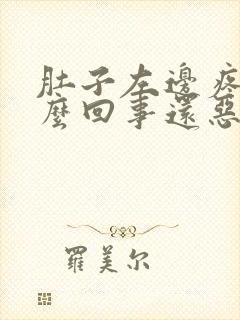 肚子左邊疼
麼回事還惡
羅美尔